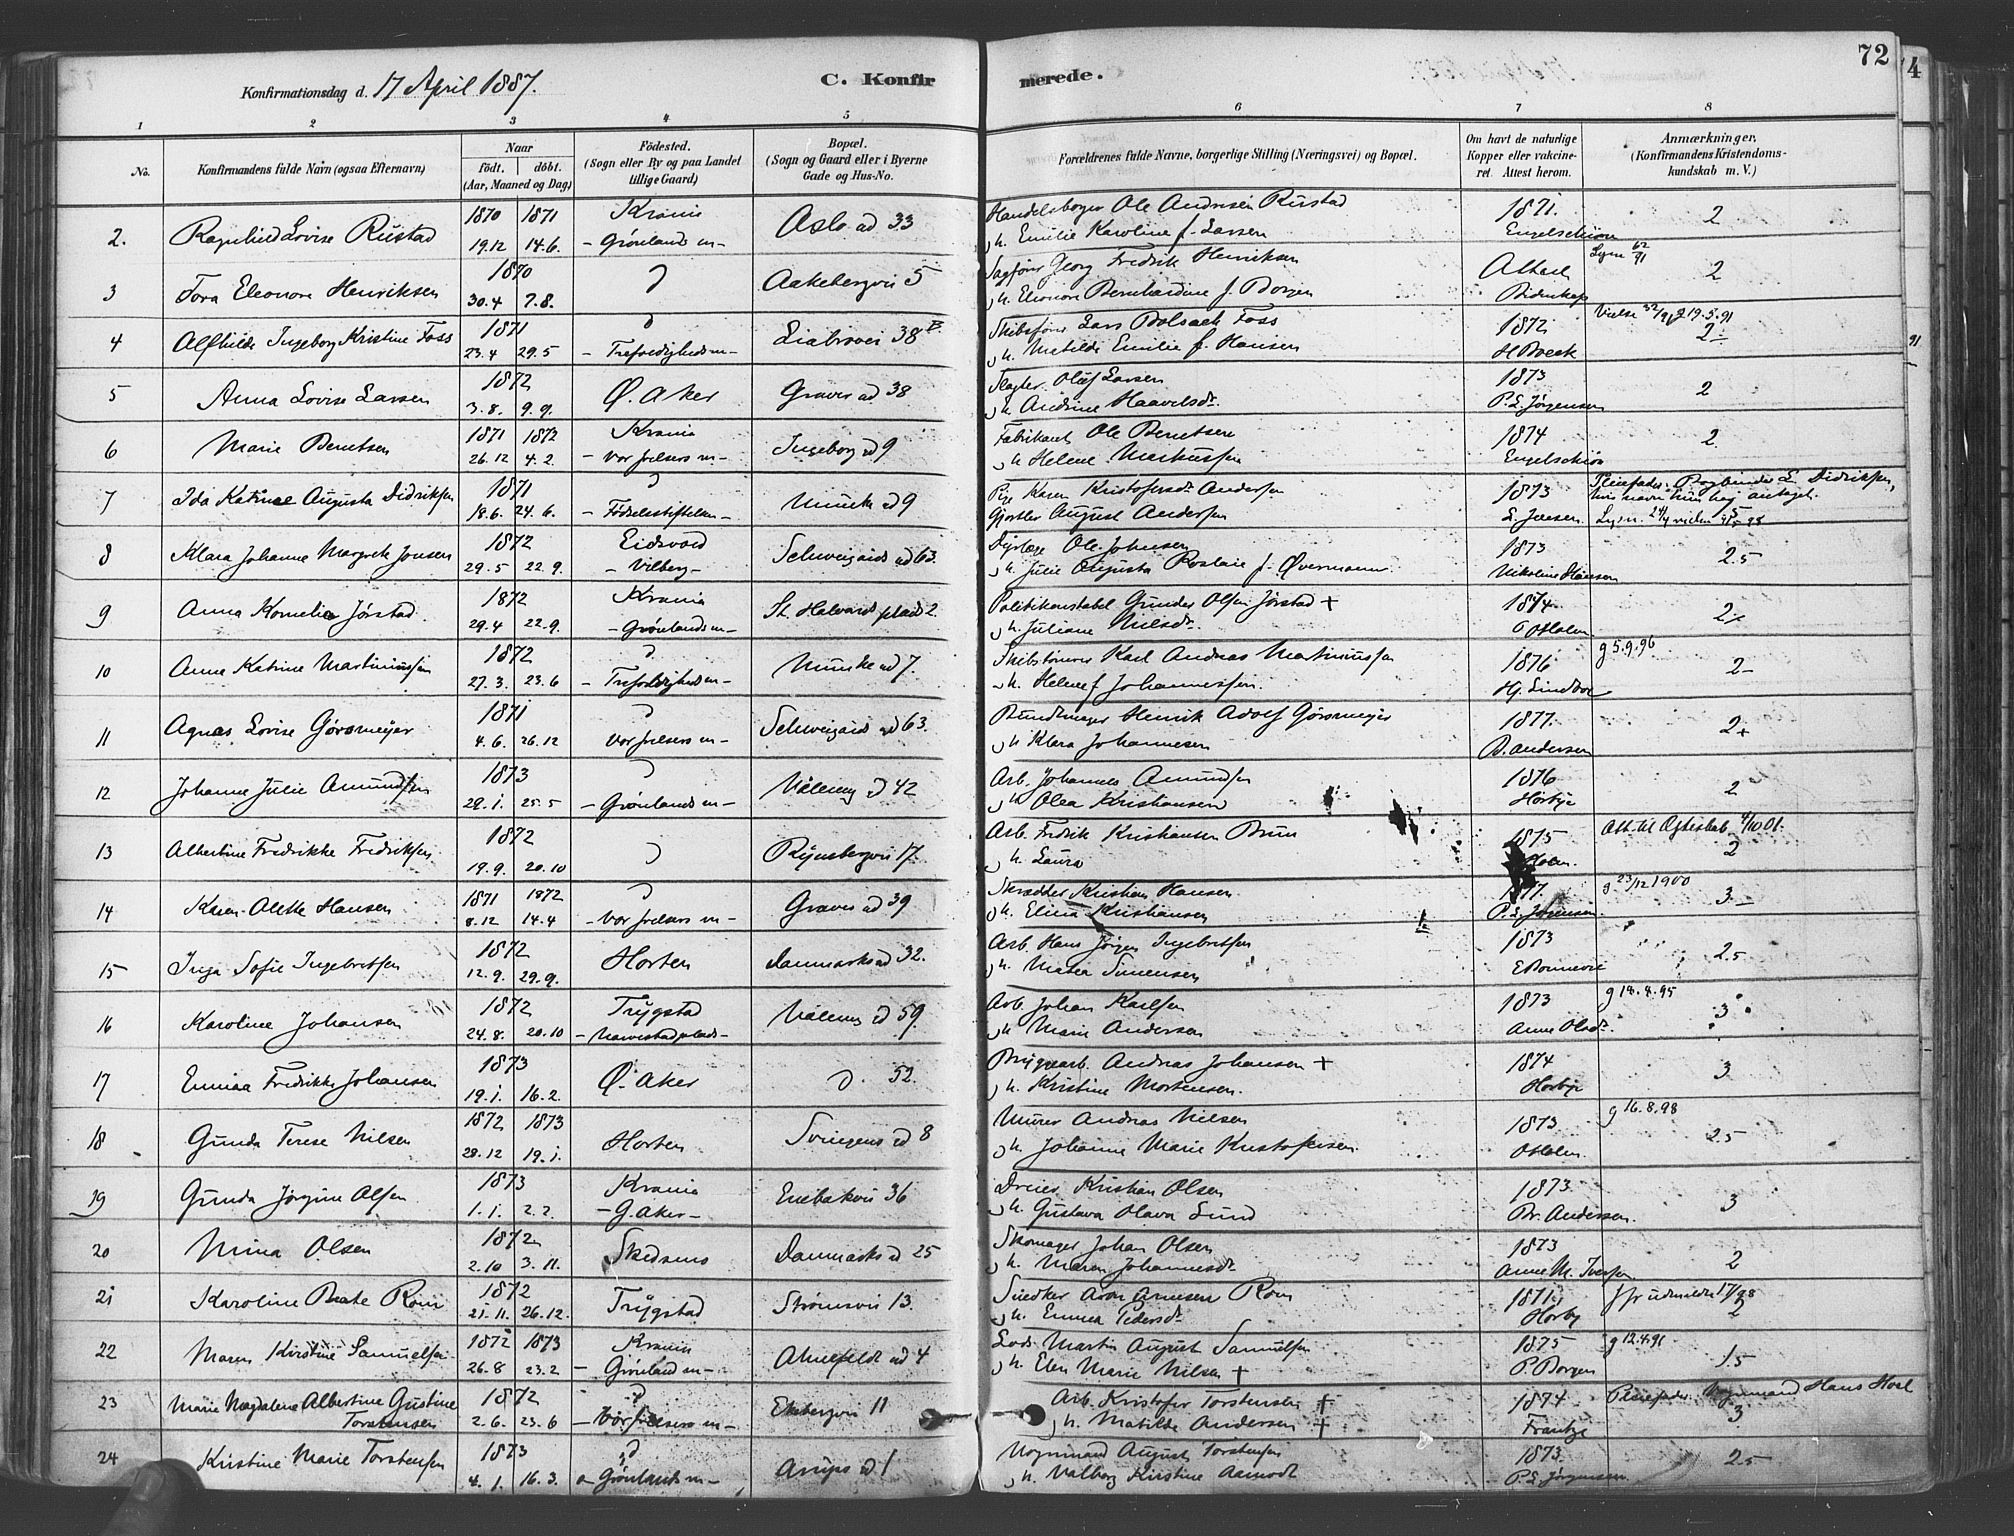 72
4
Konfirmationsdag d. 17 April 1887.
C. Konfirmerede.
1 2 3 4 5 6 7 8
No.
Konfirmandens fulde Navn (ogsaa Efternavn)
Naar
födt. döbt.
(Aar, Maaned og Dag)
Födested.
(Sogn eller By og paa Landet
tillige Gaard)
Bopæl.
(Sogn og Gaard eller i Byerne
Gade og Hus-No.
Forældrenes fulde Navne, borgerlige Stilling (Næringsvei) og Bopæl.
Om havt de naturlige
Kopper eller vakcine-
ret. Attest herom.
Anmærkninger.
(Konfirmandens Kristendoms-
kundskab m. V.)
2. Ragnhild Lovise Rustad 1870 1871 19.12 14.6. Krania - Grønlands m- Oslo gd 33 Handelsborger Ole Andresen Rustad
h. Emilie Karoline f. Larsen 1871. Engelschiøn 2
3 Tora Eleonore Henriksen 1870 30.4 7.8. Aakebergvei 5 Georg Fredrik Henriksen
h. Eleonore Bernhardine f. Borgen Attest 2
4 Alfhilde Ingeborg Kristine Foss 1871 23.4 29.5 - Trefoldigheds m- Liabrovei 38 Skibsfører Lars Foss
h. Matilde Emilie f. Hansen 1872 H Boeck 19.5.91 2-
5 Anna Lovise Larsen 1872 3.8. 9.9. Ø. Aker Graver gd 38 Slagter Oluf Larsen
h. Andrine Haavelsdr 1873 P. L. Jørgensen 2
6 Marie Berntsen 1871 1872 26.12 4.2. Krania - Vor frelsers m- Ingeborg gd 9 Fabrikant Ole Berntsen
h Helene Markussen 1874 Engelschiøn 2
7 Ida Katrine Augusta Didriksen 1871 18.6. 24.6. - Fødselsstiftelsen - Munke gd 9 Pige Karen Kristofersdr Andersen
Gjørtler August Andersen 1873 L. Jensen Pleiefader: Bogbinder L. Didriksen,
hvis navn hun har antaget.
8 Klara Johanne Margrete Jonsen 1872 29.5 22.9. Eidsvold - Vilberg - Schweigaards gd 63. Dyrlæge Ole Johnsen
h. Julie Augusta Roslaie f. Øvermann 1873 Nikoline Hansen 2.5
9 Anna Kornelia Jørstad. 1872 29.4 22.9. Krania - Grønlands m- St. Halvards plads 2 Politikonstabel Gunder Olsen Jørstad +
h. Juliane Nilsdr. 1874 O Holm 2
10 Anna Katrine Martiniussen 1872 27.3. 23.6 - Trefoldigheds m- Munke gd 7. Karl Andreas Martiniussen
h. Helene f Johannessen. 1876 Hj. Lindboe g 5.9.96 2-
11 Agnes Lovise Gørsmeyer 1871 4.6. 26.12 Vor frelsers m- Schweigaards gd 63. Bundtmager Henrik Adolf Gørsmeyer
h Klara Johannesen 1877. B. Andersen 2+
12 Johanne Julie Amundsen 1873 29.1. 25.5 - Grønlands m- Vålereng gd 42 Arb. Johannes Amundsen
h Olea Kristiansen 1876 Horbye 2
13 Albertine Fredrikke Fredriksen 1872 19.9. 20.10 Rynsbergvei 17. Arb. Fredrik Kristiansen Brun
h. Laura 1875 Holm. Att. til Ægteskab 4/10 01. 2
14 Karen Olette Hansen 1871 1872 8.12 14.4 - Vor frelsers m- Graver gd 39 Skrædder Kristian Hansen.
h. Elina Kristiansen 1877. P. L. Jørgensen g 23/12 1900 3-
15 Inga Sofie Ingebretsen 1872 12.9. 29.9. Horten Danmarks gd 32. Arb. Hans Jørgen Ingebretsen
h. Matea Simensen 1873 E Bonnevie 2.5
16 Karoline Johansen 1872 24.8. 20.10 Trygstad Vålereng gd 59. Arb. Johan Karlsen
h Marie Andersen 1873 Anne Olsdr. g 18.8.95 3
17 Emma Fredrikke Johansen 1873 19.1. 16.2. Ø. Aker 52. Bryggearb. Andreas Johansen +
h. Kristine Mortensen. 1874 Horbye 3
18 Gunda Terese Nilsen 1872 1873 28.12 19.1. Horten Sveigens gd 8 Murer Andreas Nilsen
h. Johanne Marie Kristofersen. 1873 O Holm. g 16.8.98 2.5
19 Gunda Jørgine Olsen 1873 1.1. 2.2. Krania - G. Aker - Enebakvei 36 Dreier Kristian Olsen
h. Gustava Olava Lund 1873. Br. Andersen. 3
20 Nina Olsen 1872 2.10 3.11. Skedsmo Danmarks gd 25 Skomager Johan Olsen
h. Maren Johannesdr 1873 Anne M. Iversen 2
21 Karoline Beate Rom 1872 21.11. 26.12. Trygstad Strømsvei 13. Snedker Aron Arnesen Rom
h. Emma Pedersdr 1874 Horby udmeldt 17/98 2
22 Maren Kristine Samuelsen 1872 1873 26.8 23.2 Krania - Grønland m- Ahlefeldt gd 4 Lods Martin August Samuelsen
h. Elen Marie Nilsen + 1875 P. Borgen g 12.4.91 1.5
23 Marie Magdalena Albertine Gustine
Torstensen 1872 2.6. 23.6 - Vor frelsers m- Ekebergvei 11 Arb. Kristofer Torstensen +
h. Matilde Andersen + 1874 Frantze Pleiefader Vognmand Hans Hoel 3
24 Kristine Marie Torstensen 1873 4.1. 16.3. - Grønlands m- Arups gd 1 Vognmand August Torstensen
h. Valborg Kristine Aamodt 1873. P. L. Jørgensen 2.5